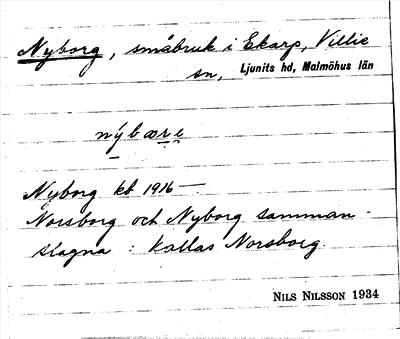 Nyborg, småbruk i Ekarp, Villie
sn, Ljunits hd, Malmöhus län
nýbære
Nyborg kb 1916 —
Norsborg och Nyborg samman-
slagna : kallas Norsborg.
NILS NILSSON 1934